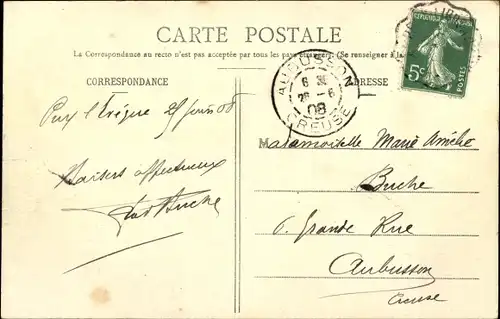 CARTE POSTALE
La Correspondance au recto n'est pas acceptée par tous les pays étrangers. (Se renseigner à la
CORRESPONDANCE
ADRESSE
AUBUSSON
6
26 - 6
08
CREUSE
5c
POSTES
Puy l'Evêque 25 juin 08
Baisers affectueux
Mademoiselle Marie Amélie
Buche
6, Grande Rue
Aubusson
Creuse